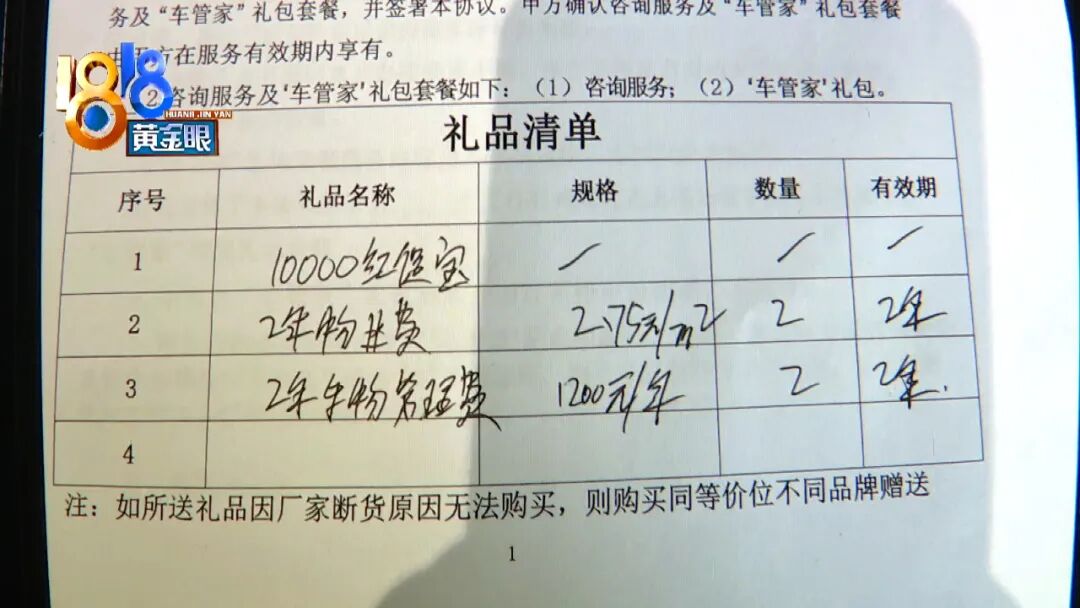 务及“车管家”礼包套餐，并签署本协议。甲方确认咨询服务及“车管家”礼包套餐
方在服务有效期内享有。
1818
HUANG JIN YAN
黄金眼
2 咨询服务及‘车管家’礼包套餐如下：（1）咨询服务；（2）‘车管家’礼包。
礼品清单
序号 礼品名称 规格 数量 有效期
1 10000红包宝 / / /
2 2年物业费 2.75元/m2 2 2年
3 2年车物管理费 1200元/年 2 2年.
4
注：如所送礼品因厂家断货原因无法购买，则购买同等价位不同品牌赠送
1